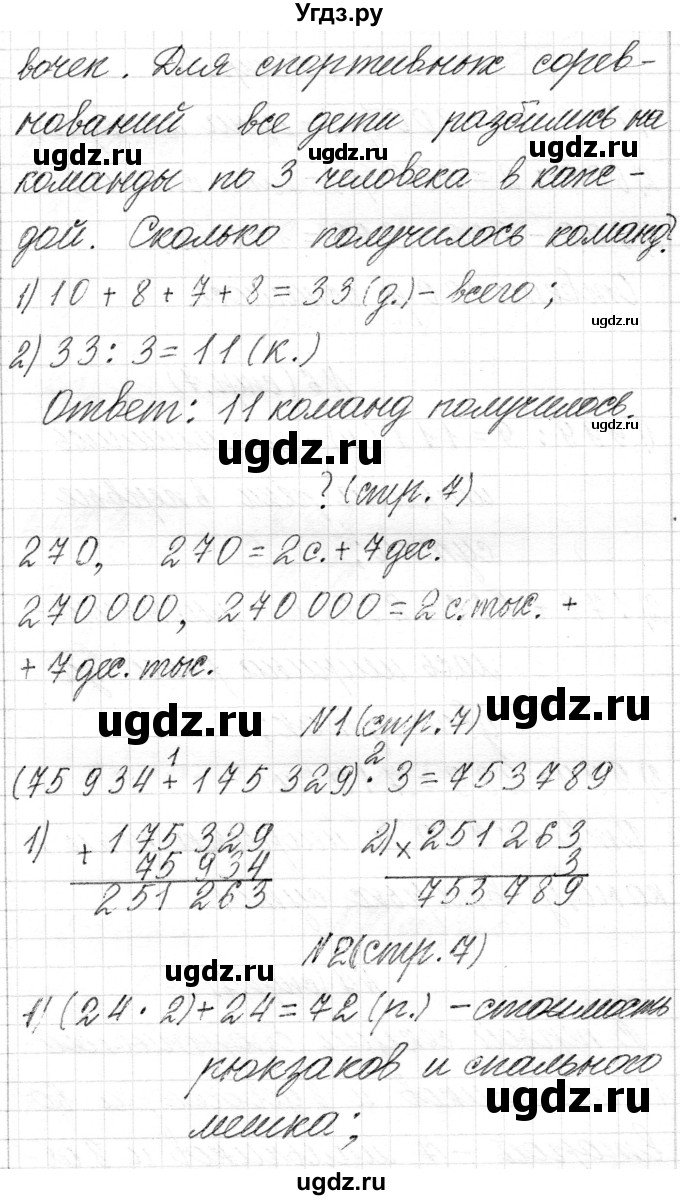 Угдз.ру
вочек. Для спортивных сорев-
нований все дети разбились на
команды по 3 человека в каж-
дой. Сколько получилось команд?
1) 10 + 8 + 7 + 8 = 33 (д.) – всего;
2) 33 : 3 = 11 (к.)
Ответ: 11 команд получилось.
? (стр. 7)
270, 270 = 2 с. + 7 дес.
270 000, 270 000 = 2 с. тыс. +
+ 7 дес. тыс.
N1 (стр. 7)
1 2
(75 934 + 175 329) · 3 = 753 789
1) + 175 329 2) × 251 263
75 934 3
251 263 753 789
N2 (стр. 7)
1) (24 · 2) + 24 = 72 (р.) – стоимость
рюкзаков и спального
мешка;
ugdz.ru
ugdz.ru
ugdz.ru
ugdz.ru
ugdz.ru
ugdz.ru
ugdz.ru
ugdz.ru
ugdz.ru
ugdz.ru
ugdz.ru
ugdz.ru